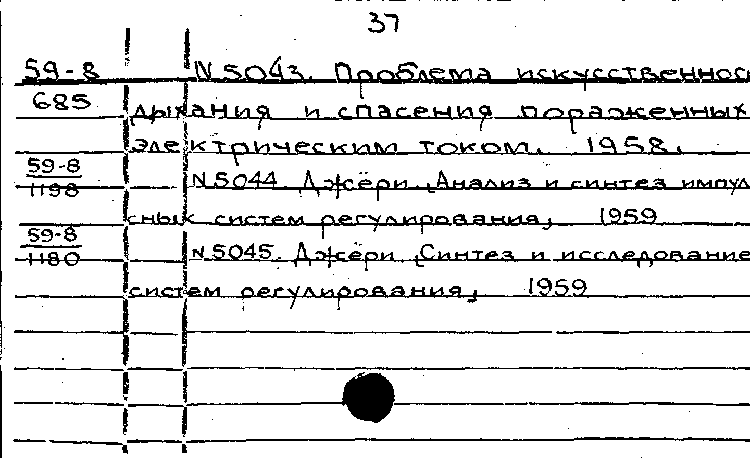 37
59-8 N 5043. Проблема искусственног
685 дыхания и спасения пораженных
электрическим током. 1958.
59-8
1198 N 5044 Джёри „Анализ и синтез импул
сных систем регулирования„ 1959
59-8
1180 N 5045. Джёри „Синтез и исследование
систем регулирования„ 1959